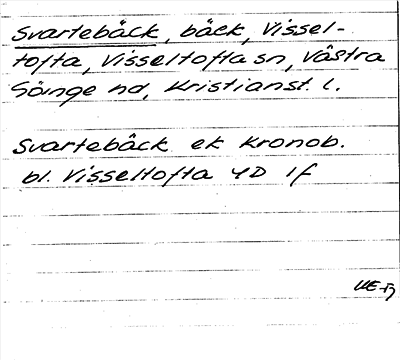 Svartebäck, bäck, Vissel-
tofta, Visseltofta sn, Västra
Göinge hd, Kristianst. l.
Svartebäck ek Kronob.
bl. Visseltofta 4D 1f